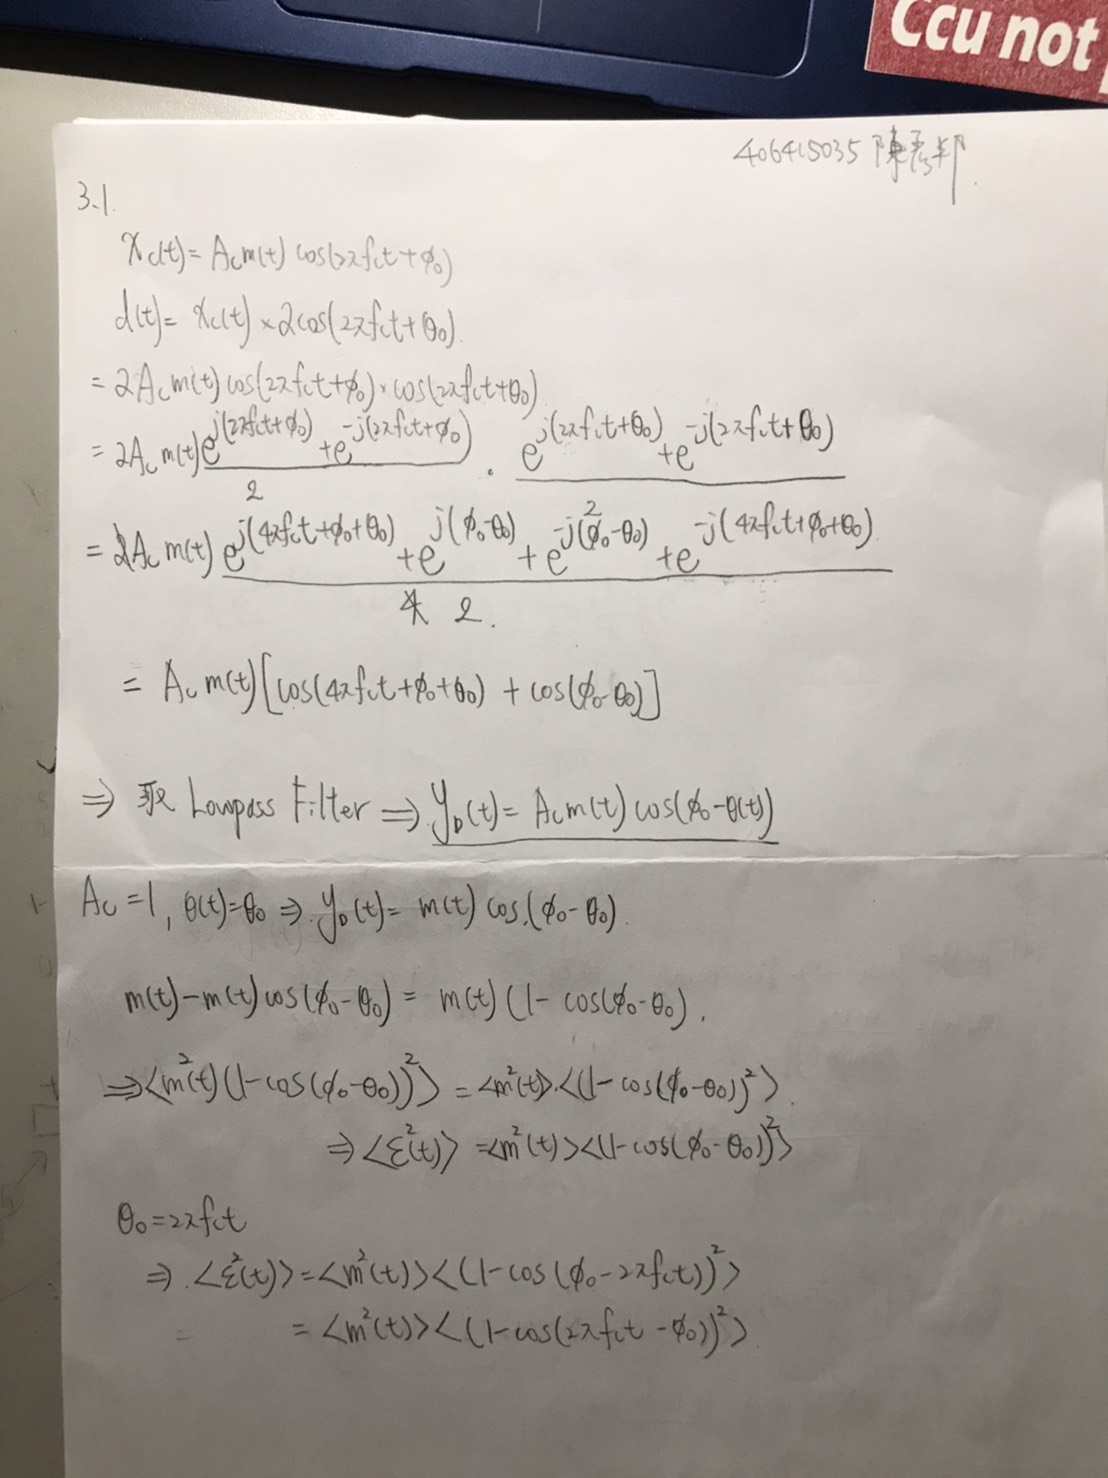 Ccu not
406415035 陳彥邦
3.1.
x_c(t) = A_c m(t) cos(2πf_ct + φ₀)
d(t) = x_c(t) × 2cos(2πf_ct + θ₀).
= 2A_c m(t) cos(2πf_ct + φ₀) × cos(2πf_ct + θ₀)
= 2A_c m(t) (e^{j(2πf_ct+φ₀)} + e^{-j(2πf_ct+φ₀)})/2 · (e^{j(2πf_ct+θ₀)} + e^{-j(2πf_ct+θ₀)})/2
= A_c m(t) (e^{j(4πf_ct+φ₀+θ₀)} + e^{j(φ₀-θ₀)} + e^{-j(φ₀-θ₀)} + e^{-j(4πf_ct+φ₀+θ₀)})/2.
= A_c m(t) [cos(4πf_ct + φ₀ + θ₀) + cos(φ₀ - θ₀)]
⇒ 取 Lowpass Filter ⇒ y_D(t) = A_c m(t) cos(φ₀ - θ(t))
A_c = 1, θ(t) = θ₀ ⇒ y_D(t) = m(t) cos(φ₀ - θ₀).
m(t) - m(t) cos(φ₀ - θ₀) = m(t) (1 - cos(φ₀ - θ₀).
⇒ <m²(t) (1 - cos(φ₀ - θ₀))²> = <m²(t)> · <(1 - cos(φ₀ - θ₀))²>.
⇒ <ε²(t)> = <m²(t)> <(1 - cos(φ₀ - θ₀))²>
θ₀ = 2πf_ct
⇒ <ε²(t)> = <m²(t)> <(1 - cos(φ₀ - 2πf_ct))²>
= <m²(t)> <(1 - cos(2πf_ct - φ₀))²>.